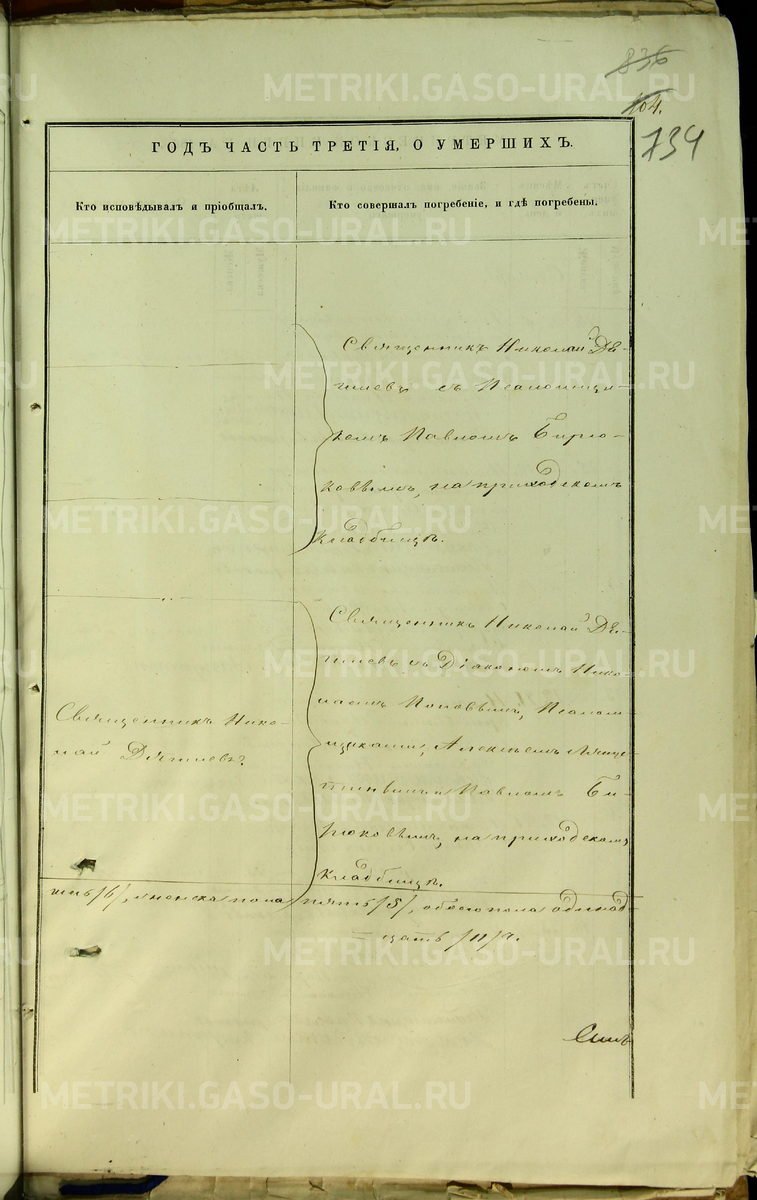 836
104.
734
ГОДЪ ЧАСТЬ ТРЕТІЯ, О УМЕРШИХЪ.
Кто исповѣдывалъ и пріобщалъ.
Кто совершалъ погребеніе, и гдѣ погребены.
Священникъ Николай Дя-
гилевъ съ Псаломщи-
комъ Павломъ Бирю-
ковымъ, на приходскомъ
кладбищѣ.
Священникъ Нико-
лай Дягилевъ
Священникъ Николай Дя-
гилевъ съ Діакономъ Нико-
лаемъ Поповымъ, Псалом-
щиками, Алексѣемъ
и Павломъ Би-
рюковымъ, на приходскомъ
кладбищѣ.
/6/, женска пола пять /5/, обоего пола одинад-
цать /11/.
METRIKI.GASO-URAL.RU